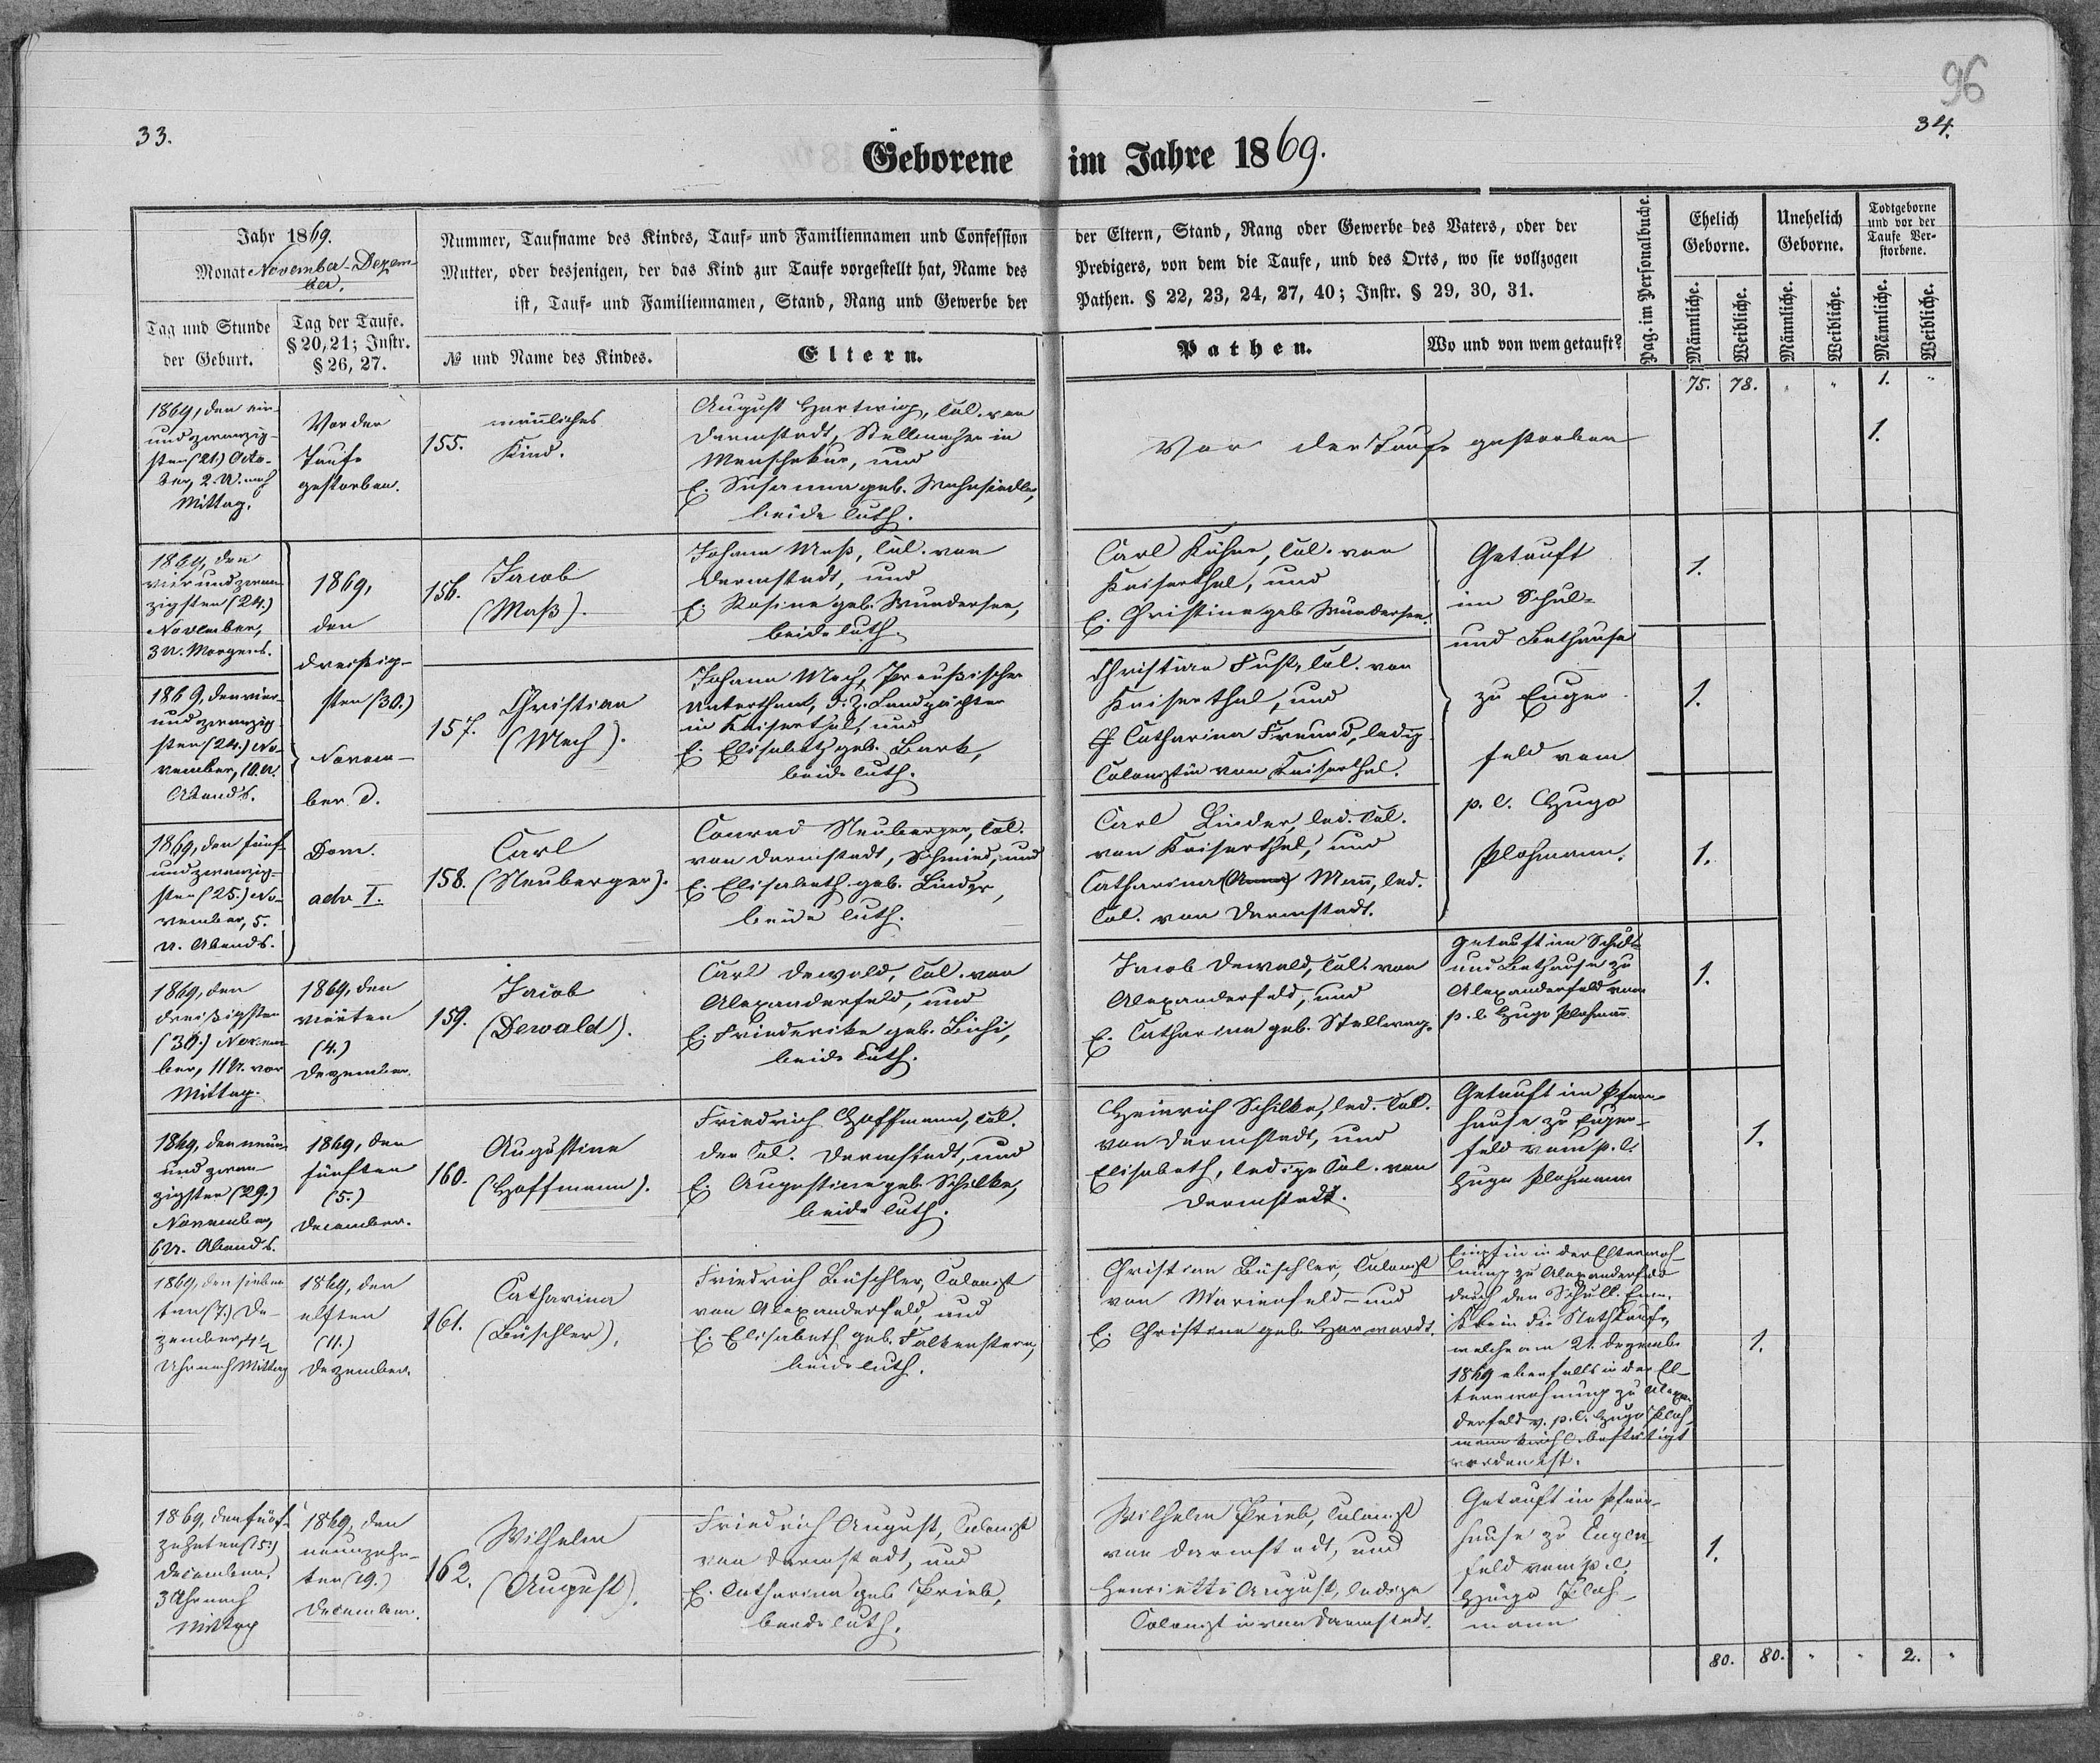 96
33.
34.
Geborene im Jahre 1869.
Jahr 1869.
Monat November-Dezem-
ber.
Tag und Stunde
der Geburt.
Tag der Taufe.
§ 20, 21; Instr.
§ 26, 27.
Nummer, Taufname des Kindes, Tauf- und Familiennamen und Confession
Mutter, oder desjenigen, der das Kind zur Taufe vorgestellt hat, Name des
ist, Tauf- und Familiennamen, Stand, Rang und Gewerbe der
№ und Name des Kindes.
Eltern.
der Eltern, Stand, Rang oder Gewerbe des Vaters, oder der
Predigers, von dem die Taufe, und des Orts, wo sie vollzogen
Pathen. § 22, 23, 24, 27, 40; Instr. § 29, 30, 31.
Pathen.
Wo und von wem getauft?
Pag. im Personalbuche.
Ehelich
Geborne.
Unehelich
Geborne.
Todtgeborne
und vor der
Taufe Ver-
storbene.
Männliche.
Weibliche.
Männliche.
Weibliche.
Männliche.
Weibliche.
75. 78. " " 1. "
1869, den ein-
und zwanzig-
sten (21.) Octo-
ber, 2. U. nach
Mittag.
Vor der
Taufe
gestorben.
155.
männliches
Kind.
August Hartwig, Col. von
Darmstadt, Stellmacher in
und
E. Susanna geb.
beide luth.
Vor der Taufe gestorben
1.
1869, den
vier und zwan-
zigsten (24.)
November,
3 U. Morgens.
1869,
den
dreißig-
sten (30.)
Novem-
ber. d.
Dom.
adv I.
156.
Jacob
(Maß).
Johann Maß, Col. von
Darmstadt, und
E. Rosine geb. Wundersee,
beide luth.
Carl Kühne, Col. von
Kaiserthal, und
E. Christine geb. Wundersee.
Getauft
im Schul-
und Bethause
zu Eugen-
feld vom
p. l. Hugo
Plohmann.
1.
1869, den vier-
und zwanzig-
sten (24.) No-
vember, 10. U.
Abends.
157.
Christian
(Mech).
Johann Mech, Preußischer
Unterthan, d. Z. Landpächter
in Kaiserthal, und
E. Elisabeth geb. Bark,
beide luth.
Christian Fust, Col. von
Kaiserthal, und
Catharina Freund, ledig.
Colonistin von Kaiserthal.
1.
1869, den fünf-
und zwanzig-
sten (25.) No-
vember, 5.
U. Abends.
158.
Carl
(Neuberger).
Conrad Neuberger, Col.
von Darmstadt, Schmied, und
E. Elisabeth geb. Linder,
beide luth.
Carl Linder, led. Col.
von Kaiserthal, und
Catharina (Anna) Mann, led.
Col. von Darmstadt.
1.
1869, den
dreißigsten
(30.) Novem-
ber, 11 U. vor
Mittag.
1869, den
vierten
(4.)
Dezember.
159.
Jacob
(Dewald).
Carl Dewald, Col. von
Alexanderfeld, und
E. Friederike geb.
beide luth.
Jacob Dewald, Col. von
Alexanderfeld, und
E. Catharina geb. Stellwag.
Getauft im Schul-
und Bethause zu
Alexanderfeld vom
p. l. Hugo Plohmann
1.
1869, den neun
und zwan-
zigsten (29.)
November,
6 U. Abends.
1869, den
fünften
(5.)
December.
160.
Augustine
(Hoffmann).
Friedrich Hoffmann, Col.
der Col. Darmstadt, und
E. Augustine geb. Schilke,
beide luth.
Heinrich Schilke, led. Col.
von Darmstadt, und
Elisabeth, ledige Col. von
Darmstadt.
Getauft im Pfarr-
hause zu Eugen-
feld vom p. l.
Hugo Plohmann
1.
1869, den sieben-
ten (7.) De-
zember, 4½
Uhr nach Mittag
1869, den
elften
(11.)
Dezember.
161.
Catharina
(Büschler).
Friedrich Büschler, Colonist
von Alexanderfeld, und
E. Elisabeth geb. Falkenstern,
beide luth.
Christian Büschler, Colonist
von Marienfeld und
E. Christine geb.
Empfing in der Elternwoh-
nung zu Alexanderfeld
durch den Schull.
die Nothtaufe,
welche am 21. Dezember
1869 ebenfalls in der El-
ternwohnung zu Alexan-
derfeld v. p. l. Hugo Ploh-
mann kirchl. bestätigt
worden ist.
1.
1869, den fünf-
zehnten (15.)
December,
3 Uhr nach
Mittag
1869, den
neunzehn-
ten (19.)
December.
162.
Wilhelm
(August).
Friedrich August, Colonist
von Darmstadt, und
E. Catharina geb. Prieb,
beide luth.
Wilhelm Prieb, Colonist
von Darmstadt, und
Henriette August, ledige
Colonistin von Darmstadt.
Getauft im Pfarr-
hause zu Eugen-
feld vom p. l.
Hugo Ploh-
mann
1.
80. 80. " " 2. "